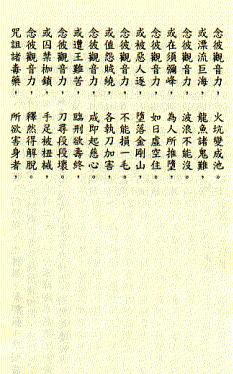 念彼觀音力，火坑變成池。
或漂流巨海，龍魚諸鬼難，
念彼觀音力，波浪不能沒。
或在須彌峰，為人所推墮，
念彼觀音力，如日虛空住。
或被惡人逐，墮落金剛山，
念彼觀音力，不能損一毛。
或值怨賊繞，各執刀加害，
念彼觀音力，咸即起慈心。
或遭王難苦，臨刑欲壽終，
念彼觀音力，刀尋段段壞。
或囚禁枷鎖，手足被杻械，
念彼觀音力，釋然得解脫。
咒詛諸毒藥，所欲害身者，